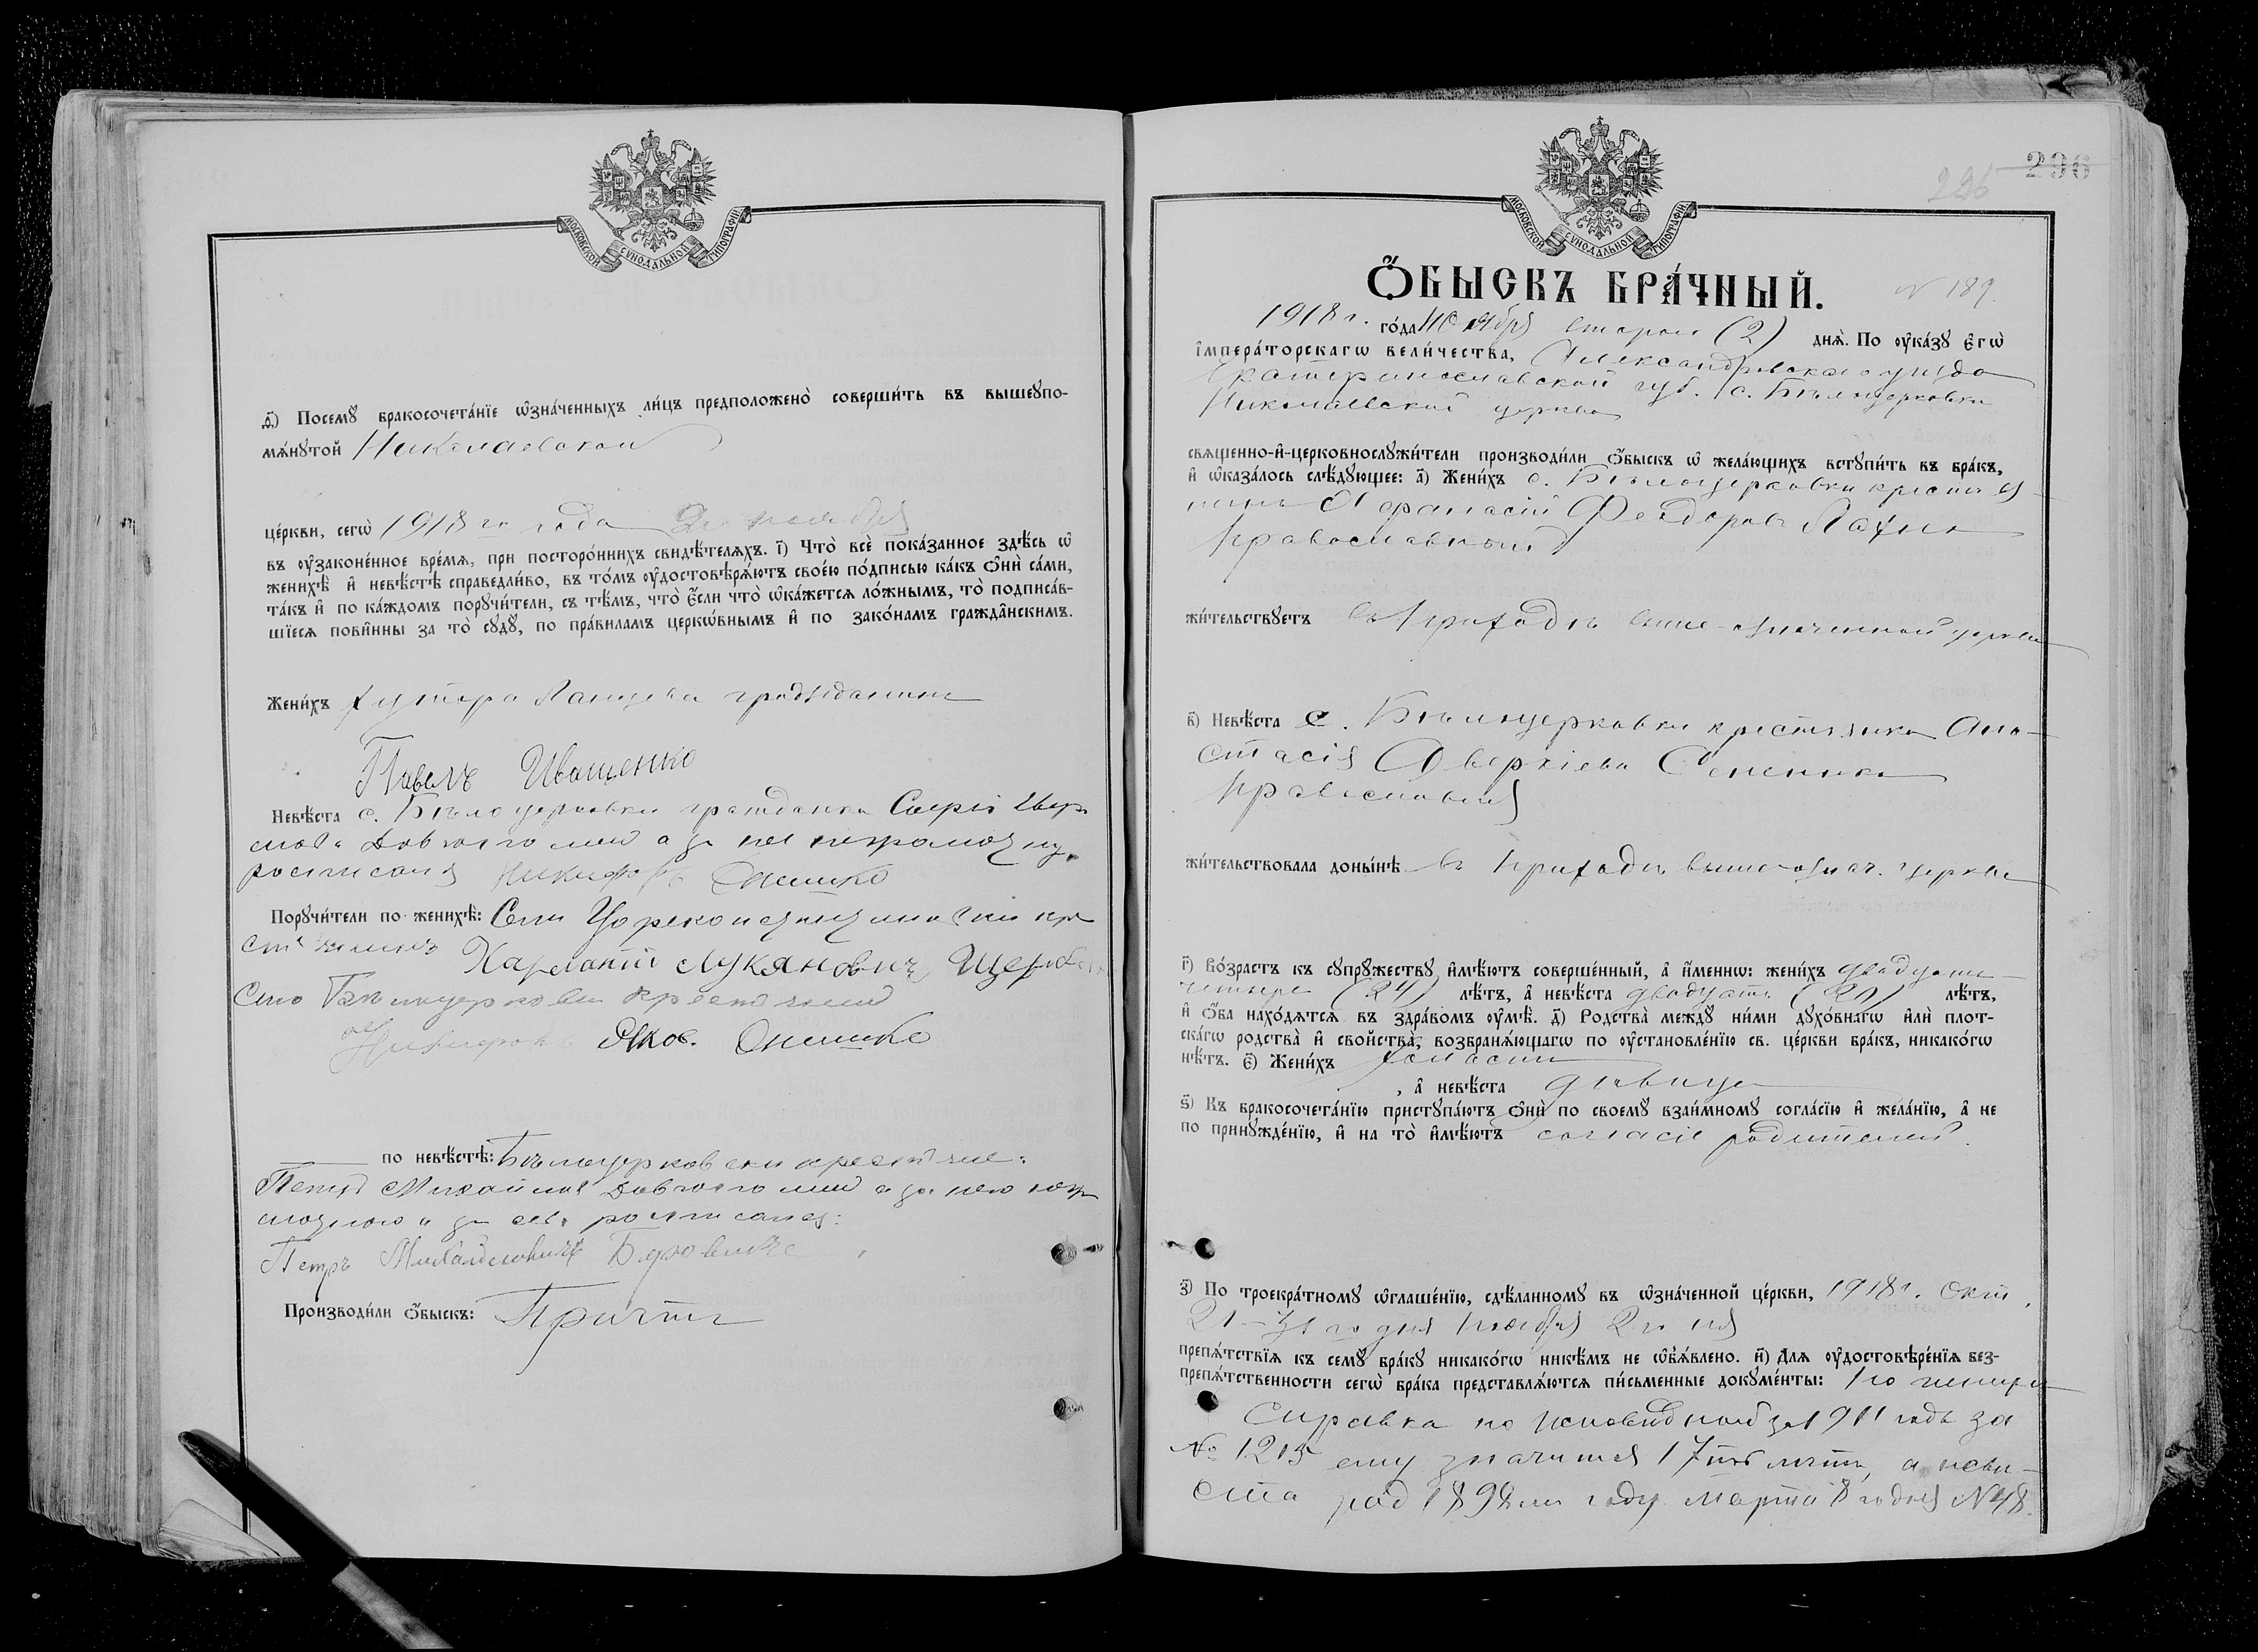 МОСКОВСКОЙ СѴНОДАЛЬНОЙ ТИПОГРАФІИ
д҃) Посемꙋ бракосочета́нїе ѡ҆зна́ченныхъ ли́цъ предположено̀ соверши́ть въ вышеꙋпо-
мѧ́нꙋтой Николаевской
це́ркви, сегѡ̀ 1918 го года 2го ноября
въ ᲂу҆законе́нное вре́мѧ, при посторо́ннихъ свидѣ́телѧхъ. і҃) Что̀ всѐ пока́занное здѣ́сь ѡ҆
женихѣ̀ и҆ невѣ́стѣ справедли́во, въ то́мъ ᲂу҆достовѣрѧ́ютъ свое́ю по́дписью ка́къ ѻ҆нѝ са́ми,
та́къ и҆ по ка́ждомъ порꙋчи́тели, съ тѣ́мъ, что̀ є҆́сли что̀ ѡ҆ка́жетсѧ ло́жнымъ, то̀ подписа́в-
шїесѧ пови́нны за то̀ сꙋдꙋ̀, по пра́виламъ церко́внымъ и҆ по зако́намъ гражда́нскимъ.
Жени́хъ хутора гражданин
Павелъ Иващенко
Невѣ́ста с. Бѣлоцерковки гражданка
а за нее неграмотну.
росписался Никифоръ Онишко
Порꙋчи́тели по женихѣ̀: Села Цареконстантиновки кре
стьянинъ Харлампій Лукяновичъ Щерб
Село Бѣлоцерковки крестьянин
Никифоръ Яков. Онишко
по невѣ́стѣ: Бѣлоцерковски крестьяне:
Петръ Михайлов а за него негра
мотного и за себя росписался:
Петръ Михайловичъ
Производи́ли ѻ҆́быскъ: Причтъ
296
226
МОСКОВСКОЙ СѴНОДАЛЬНОЙ ТИПОГРАФІИ
Ѻ҆́БЫСКЪ БРА́ЧНЫЙ.
N 189.
1918 г. го́да Ноября второго (2) днѧ̀. По ᲂу҆ка́зꙋ є҆гѡ̀
і҆мпера́торскагѡ вели́чества, Александровскаго уезда
Екатеринославской губ. с. Бѣлоцерковки
Николаевской церкви
свѧще́нно-и҆-церковнослꙋжи́тели производи́ли ѻ҆́быскъ ѡ҆ жела́ющихъ встꙋпи́ть въ бра́къ,
и҆ ѡ҆каза́лось слѣ́дꙋющее: а҃) Жени́хъ с. Бѣлоцерковки крестья-
нинъ Афанасій Феодоровъ Лахно
православный
жи́тельствꙋетъ въ приходѣ выше-означенной церкви
в҃) Невѣ́ста с. Бѣлоцерковки крестьянка Ана-
стасія Аверкіева
православная
жи́тельствовала доны́нѣ въ приходѣ вышеознач. церкви
г҃) Во́зрастъ къ сꙋпрꙋ́жествꙋ и҆мѣ́ютъ соверше́нный, а҆ и҆́меннѡ: жени́хъ двадцати
четыре (24) лѣ́тъ, а҆ невѣ́ста двадцать (20) лѣ́тъ,
и҆ ѻ҆́ба нахо́дѧтсѧ въ здра́вомъ ᲂу҆мѣ̀. д҃) Родства̀ междꙋ̀ ни́ми дꙋхо́внагѡ и҆лѝ плот-
ска́гѡ родства̀ и҆ свойства̀, возбранѧ́ющагѡ по ᲂу҆становле́нїю св. це́ркви бра́къ, никако́гѡ
нѣ́тъ. є҃) Жени́хъ холостъ
, а҆ невѣ́ста дѣвица
ѕ҃) Къ бракосочета́нїю пристꙋпа́ютъ ѻ҆нѝ по своемꙋ̀ взаи́мномꙋ согла́сїю и҆ жела́нїю, а҆ не
по принꙋжде́нїю, и҆ на то̀ и҆мѣ́ютъ согласіе родителей.
з҃) По троекра́тномꙋ ѡ҆глаше́нїю, сдѣ́ланномꙋ въ ѡ҆зна́ченной це́ркви, 1918 г. Окт.
21 - го дня Ноября 2 го дня
препѧ́тствїѧ къ семꙋ̀ бра́кꙋ никако́гѡ никѣ́мъ не ѡ҆б̾ѧ́влено. и҃) Длѧ ᲂу҆достовѣре́нїѧ без-
препѧ́тственности сегѡ̀ бра́ка представлѧ́ютсѧ пи́сьменные докꙋме́нты:
Справка по исповѣдной за 1911 годъ за
№ 1215 ему значится 17ть лѣтъ, а неве-
ста род 1898 м году марта 8 го дня N48.